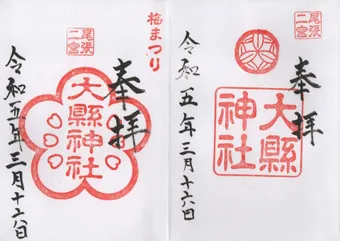 尾張
二宮
奉拝
大縣
神社
令和五年三月十六日
梅まつり
尾張
二宮
奉拝
大縣神社
令和五年三月十六日